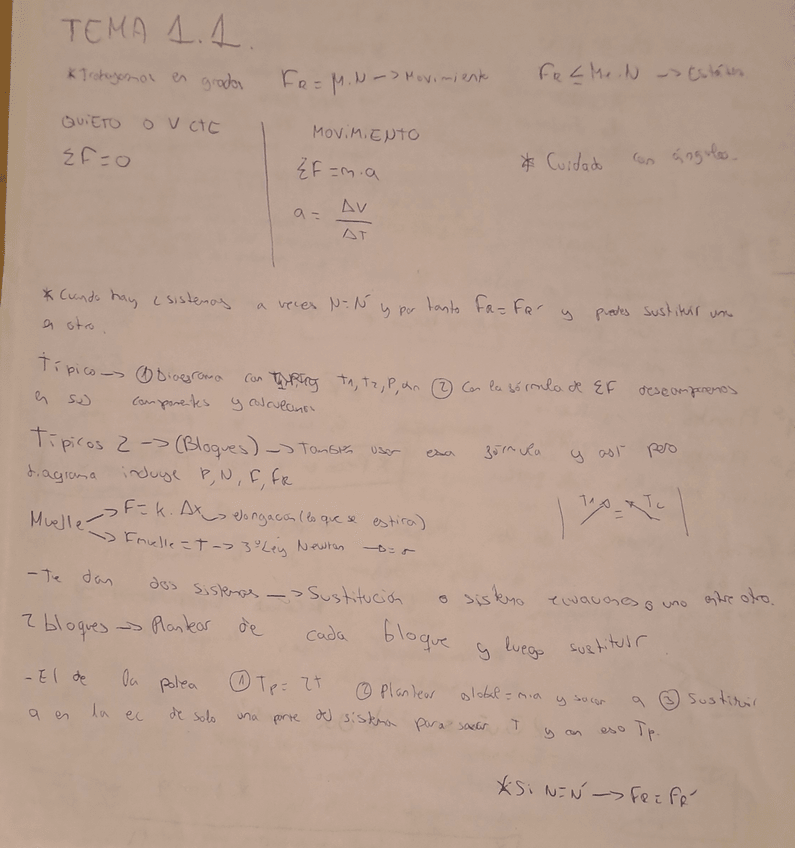 TEMA 1.1.
*Trabajamos en grados FR = μ.N —> Movimiento FR ≤ Me.N —> Estático
QUIETO O V CTE MOVIMIENTO
ΣF=0 ΣF=m.a * Cuidado con ángulos.
a = ΔV/ΔT
*Cuando hay 2 sistemas a veces N=N' y por tanto FR=FR' y puedes sustituir uno
en otro.
Típico —> ① Diagrama con T1, T2, P, ② Con la fórmula de ΣF descomponemos
en sus componentes y calculamos
Típicos 2 —> (Bloques) —> También usar esa fórmula y así pero
diagrama incluye P, N, F, FR
T1 = T2
Muelle —> F=k.Δx —> elongación (lo que se estira)
—> Fmuelle = T —> 3ª Ley Newton
-Te dan dos sistemas —> Sustitución o sistema ecuaciones o uno entre otro.
2 bloques —> Plantear de cada bloque y luego sustituir.
-El de la polea ① Tp= 2T ② Plantear global=m.a y sacar a ③ Sustituir
a en la ec de solo una parte del sistema para sacar T y con eso Tp.
*Si N=N' —> FR=FR'